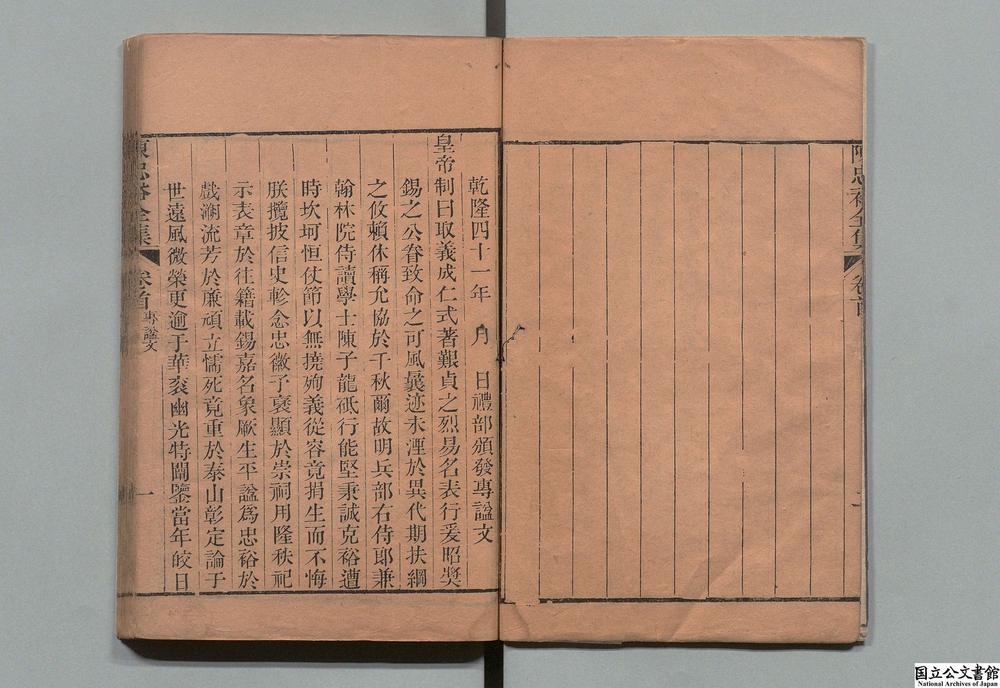 陳忠裕全集 卷首
二
乾隆四十一年 月 日禮部頒發專諡文
皇帝制曰取義成仁式著艱貞之烈易名表行爰昭獎
錫之公眷致命之可風彝迹未湮於異代期扶綱
之攸賴休稱允協於千秋爾故明兵部右侍郎兼
翰林院侍讀學士陳子龍砥行能堅秉誠克裕遭
時坎坷恒仗節以無撓殉義從容竟捐生而不悔
朕攬披信史軫念忠徽予褒顯於崇祠用隆秩祀
示表章於往籍載錫嘉名象厥生平諡爲忠裕於
戲溯流芳於廉頑立懦死竟重於泰山彰定論于
世遠風微榮更逾于華袞幽光特闡鑒當年皎日
陳忠裕全集 卷首 專諡文
一
国立公文書館
National Archives of Japan